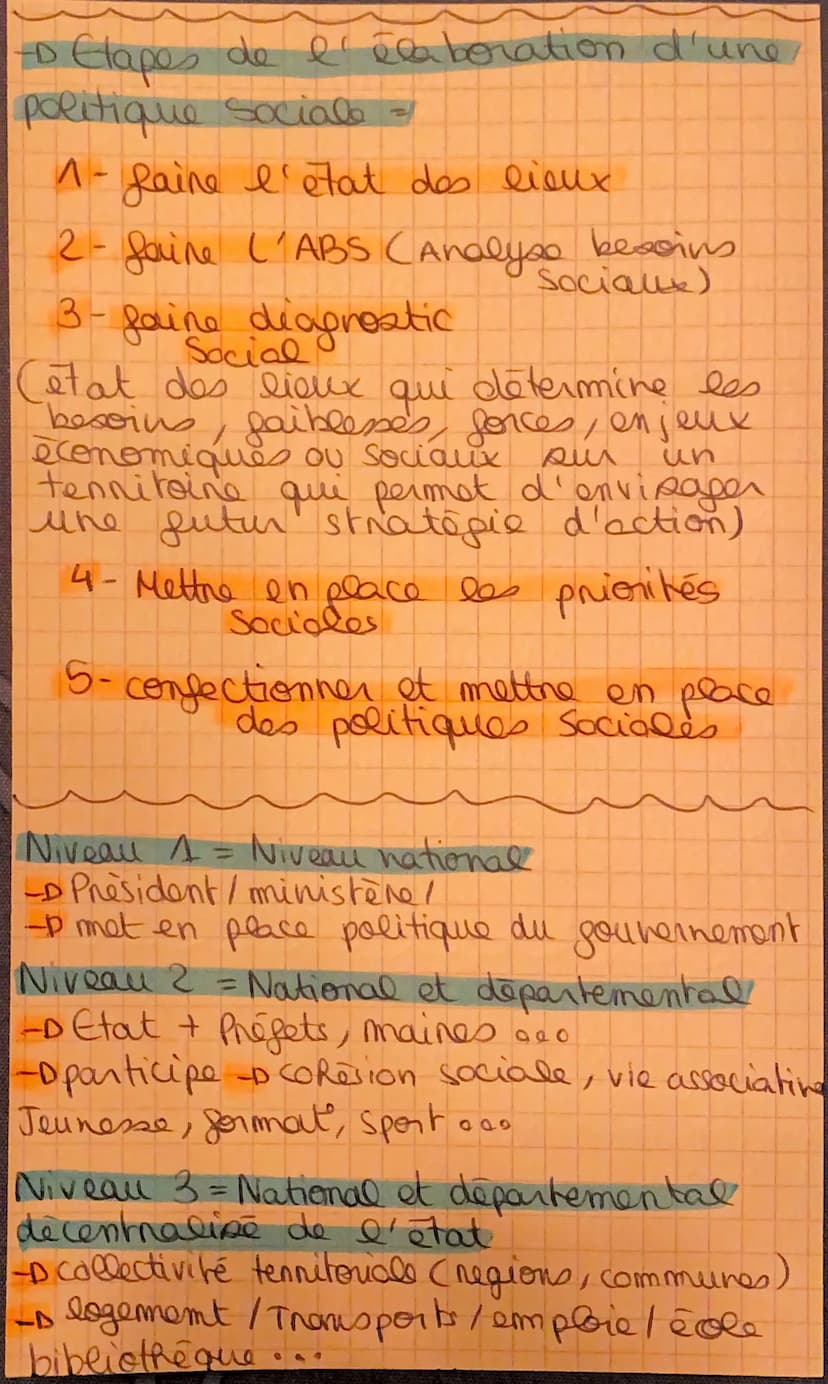 → Etapes de l'élaboration d'une
politique sociale =
1- faire l'état des lieux
2- faire L'ABS (Analyse besoins
sociaux)
3- faire diagnostic
social
(état des lieux qui détermine les
besoins, faiblesses, forces, enjeux
économiques ou sociaux sur un
territoire qui permet d'envisager
une futur stratégie d'action)
4- Mettre en place les priorités
sociales
5- confectionner et mettre en place
des politiques sociales
Niveau 1 = Niveau national
→ Président / ministère /
→ met en place politique du gouvernement
Niveau 2 = National et départemental
→ Etat + Préfets, maires ...
→ participe → cohésion sociale, vie associative
Jeunesse, format°, sport ...
Niveau 3 = National et départemental
décentralisé de l'état
→ collectivité territoriale (régions, communes)
→ logement / Transports / emploie / école
bibliothéque ...